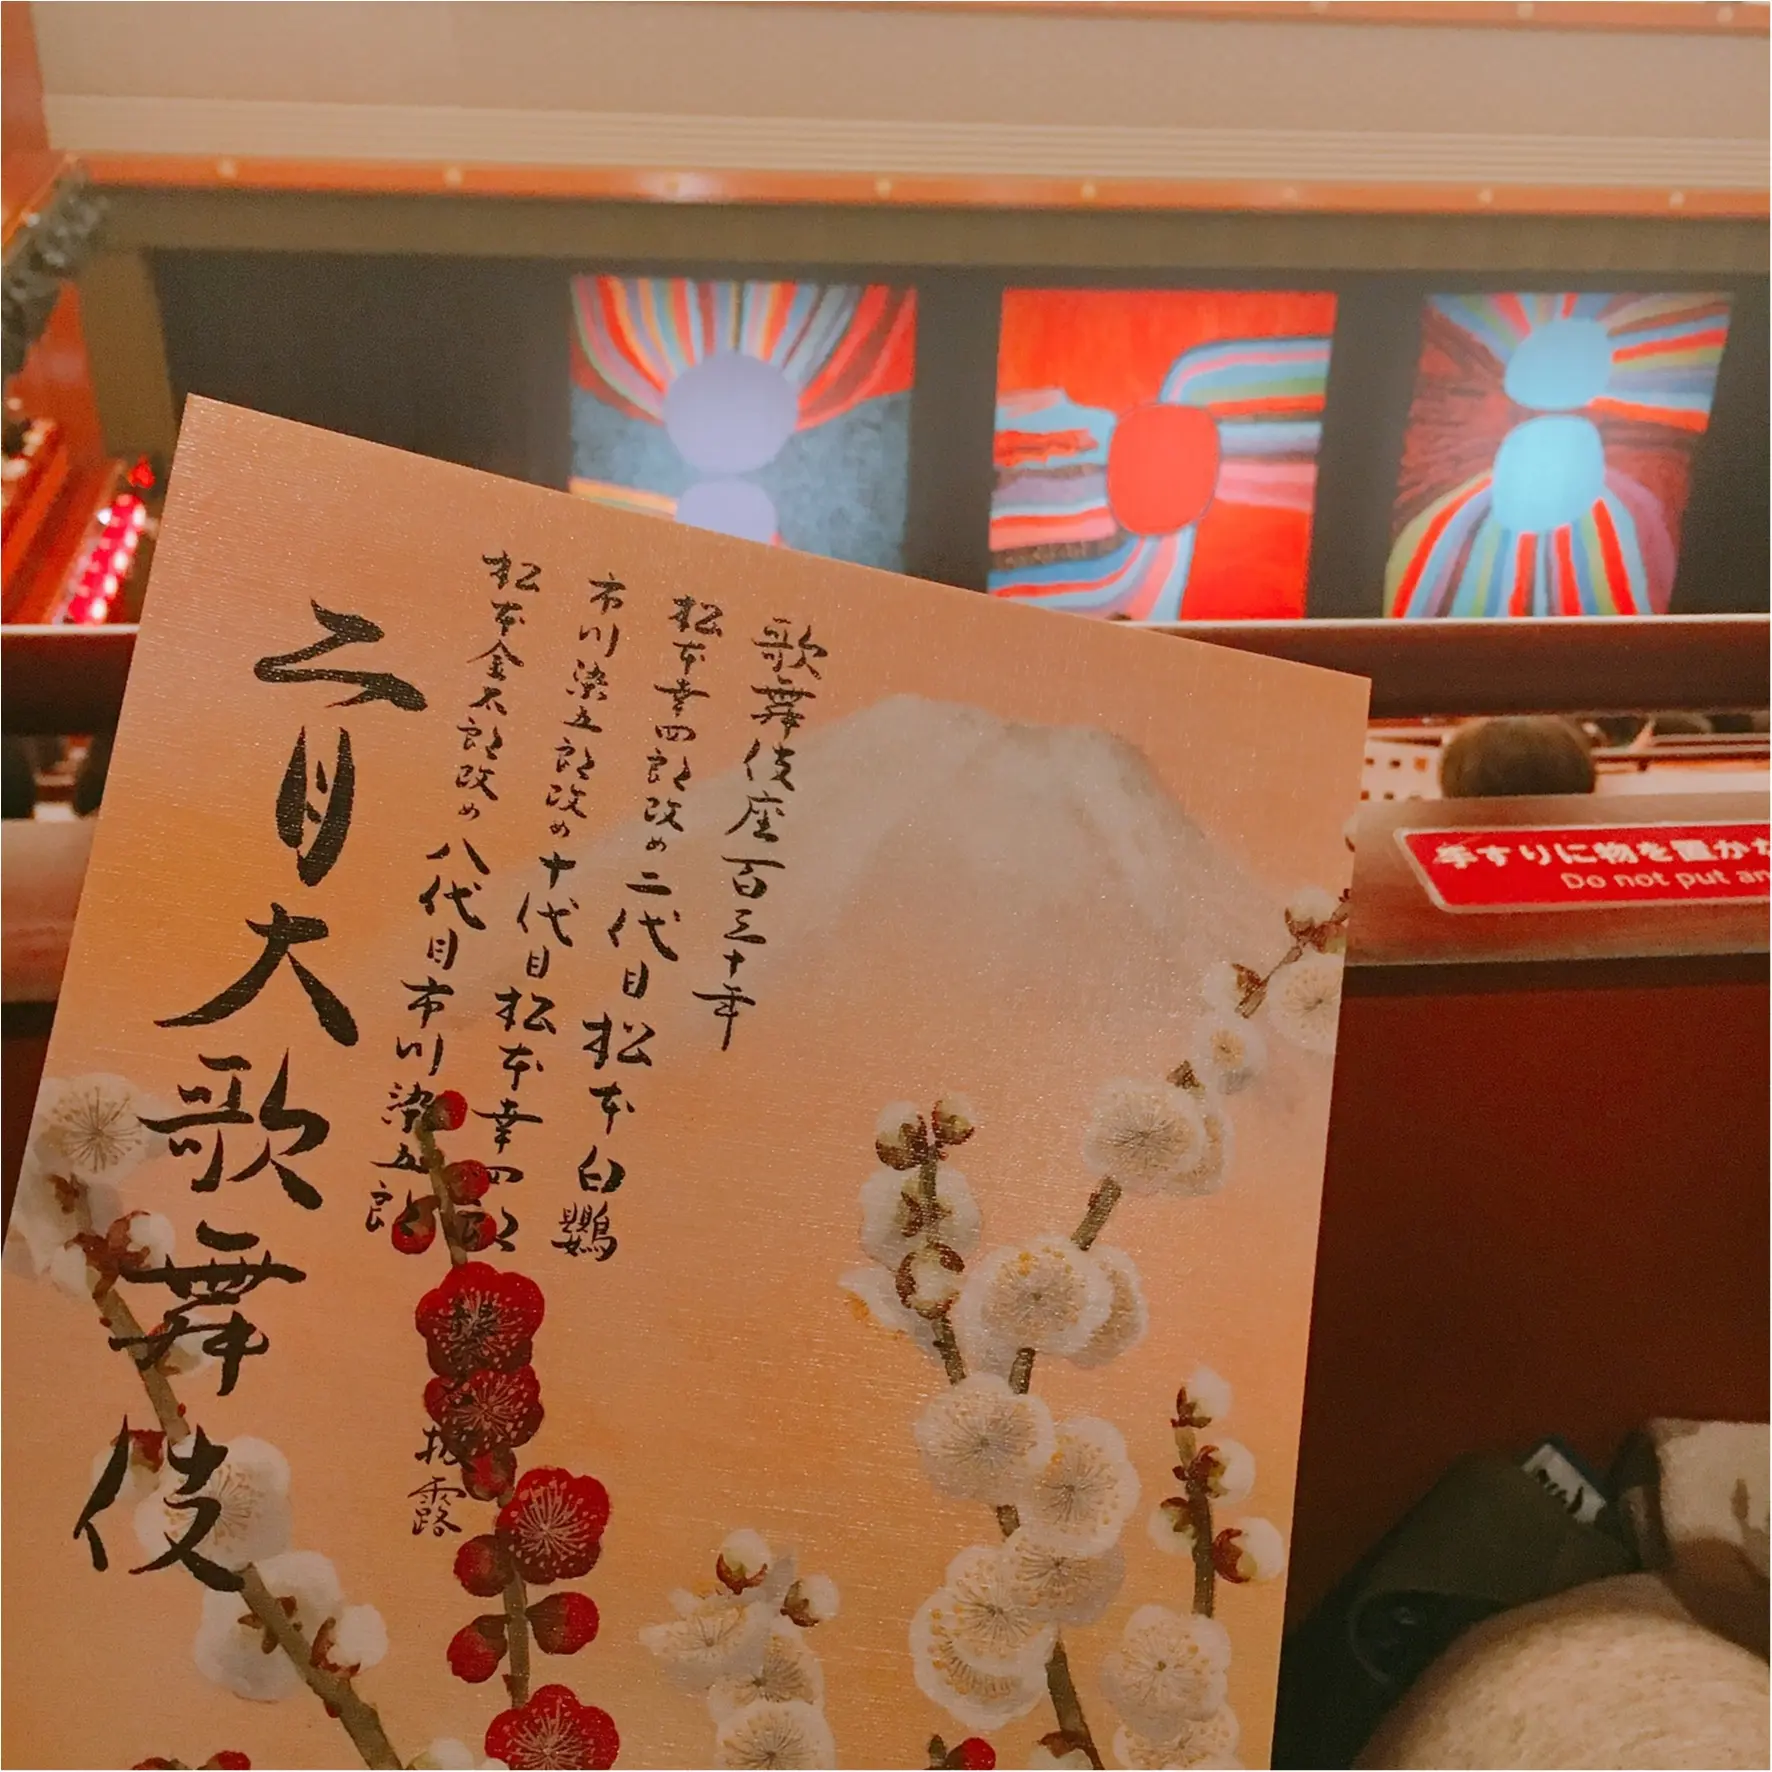 歌舞伎座百三十年
松本幸四郎改め二代目松本白鸚
市川染五郎改め十代目松本幸四郎
松本金太郎改め八代目市川染五郎
襲名披露
二月大歌舞伎
手すりに物を置かな
Do not put an